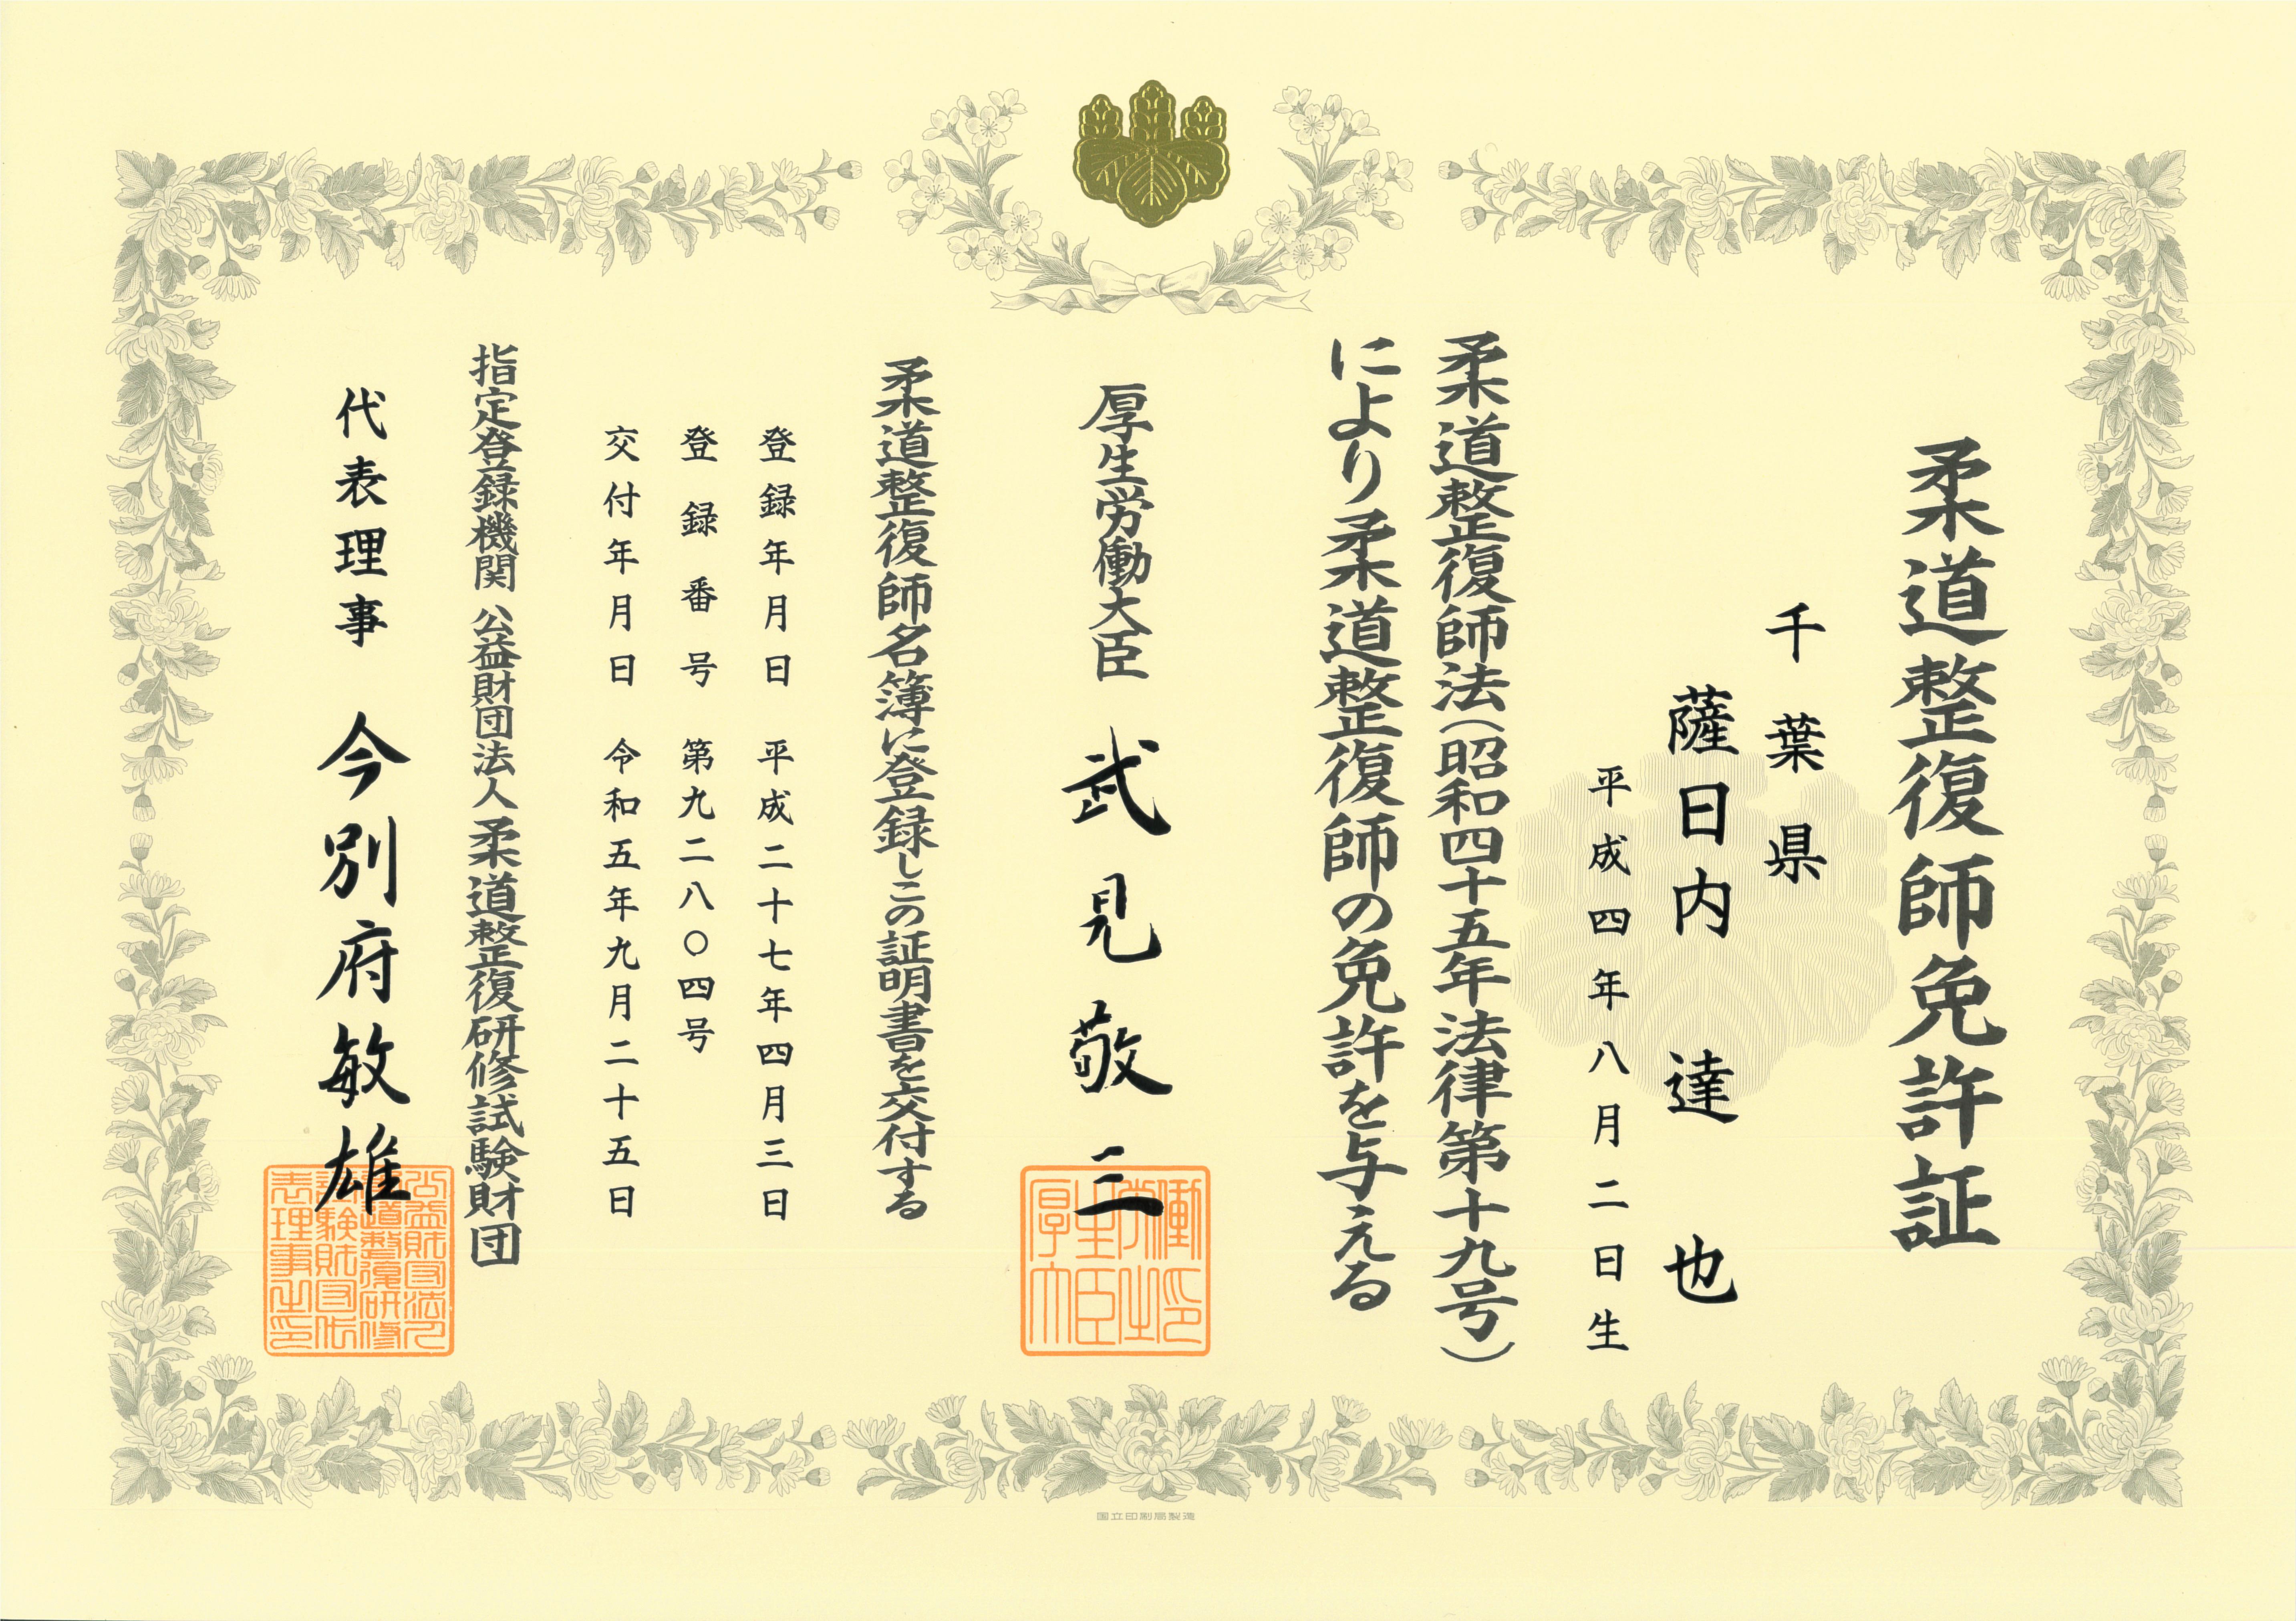 柔道整復師免許証
千葉県
薩日内 達也
平成四年八月二日生
柔道整復師法（昭和四十五年法律第十九号）
により柔道整復師の免許を与える
厚生労働大臣 武見敬三
厚生労働大臣之印
柔道整復師名簿に登録しこの証明書を交付する
登録年月日 平成二十七年四月三日
登録番号 第九二八〇四号
交付年月日 令和五年九月二十五日
指定登録機関 公益財団法人 柔道整復研修試験財団
代表理事 今別府敏雄
公益財団法人柔道整復研修試験財団代表理事之印
国立印刷局製造